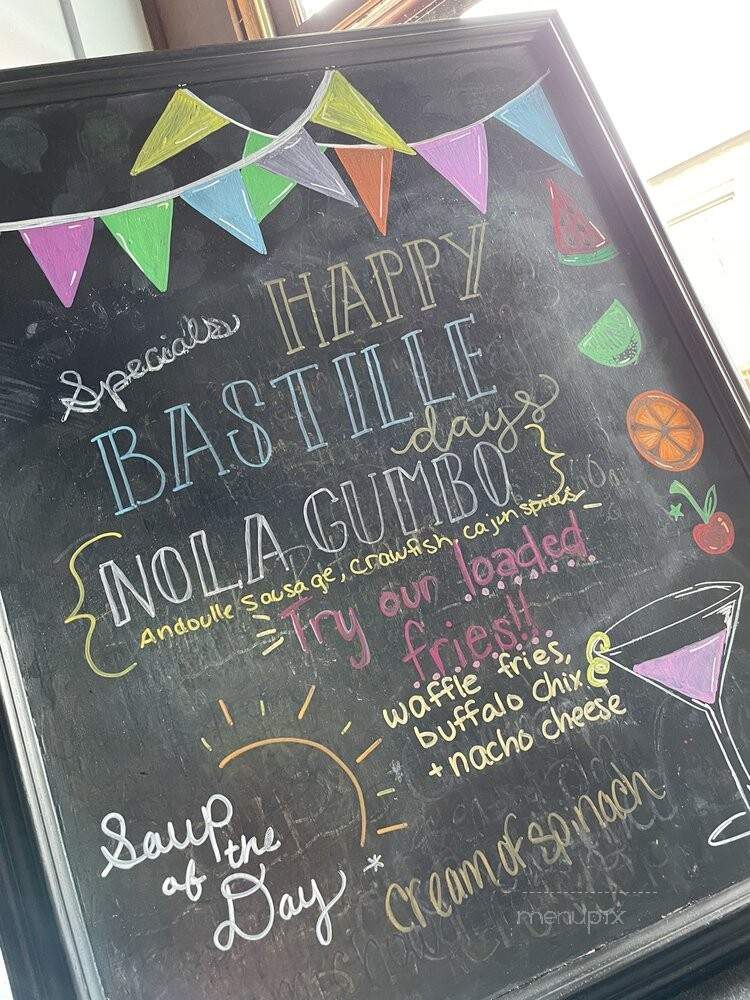 Specials
HAPPY
BASTILLE
days
NOLA GUMBO
Andoulle Sausage, Crawfish, Cajun spices
Try our loaded
fries!!
waffle fries,
buffalo chix
+ nacho cheese
Soup
of the
Day *
cream of spinach
menupix